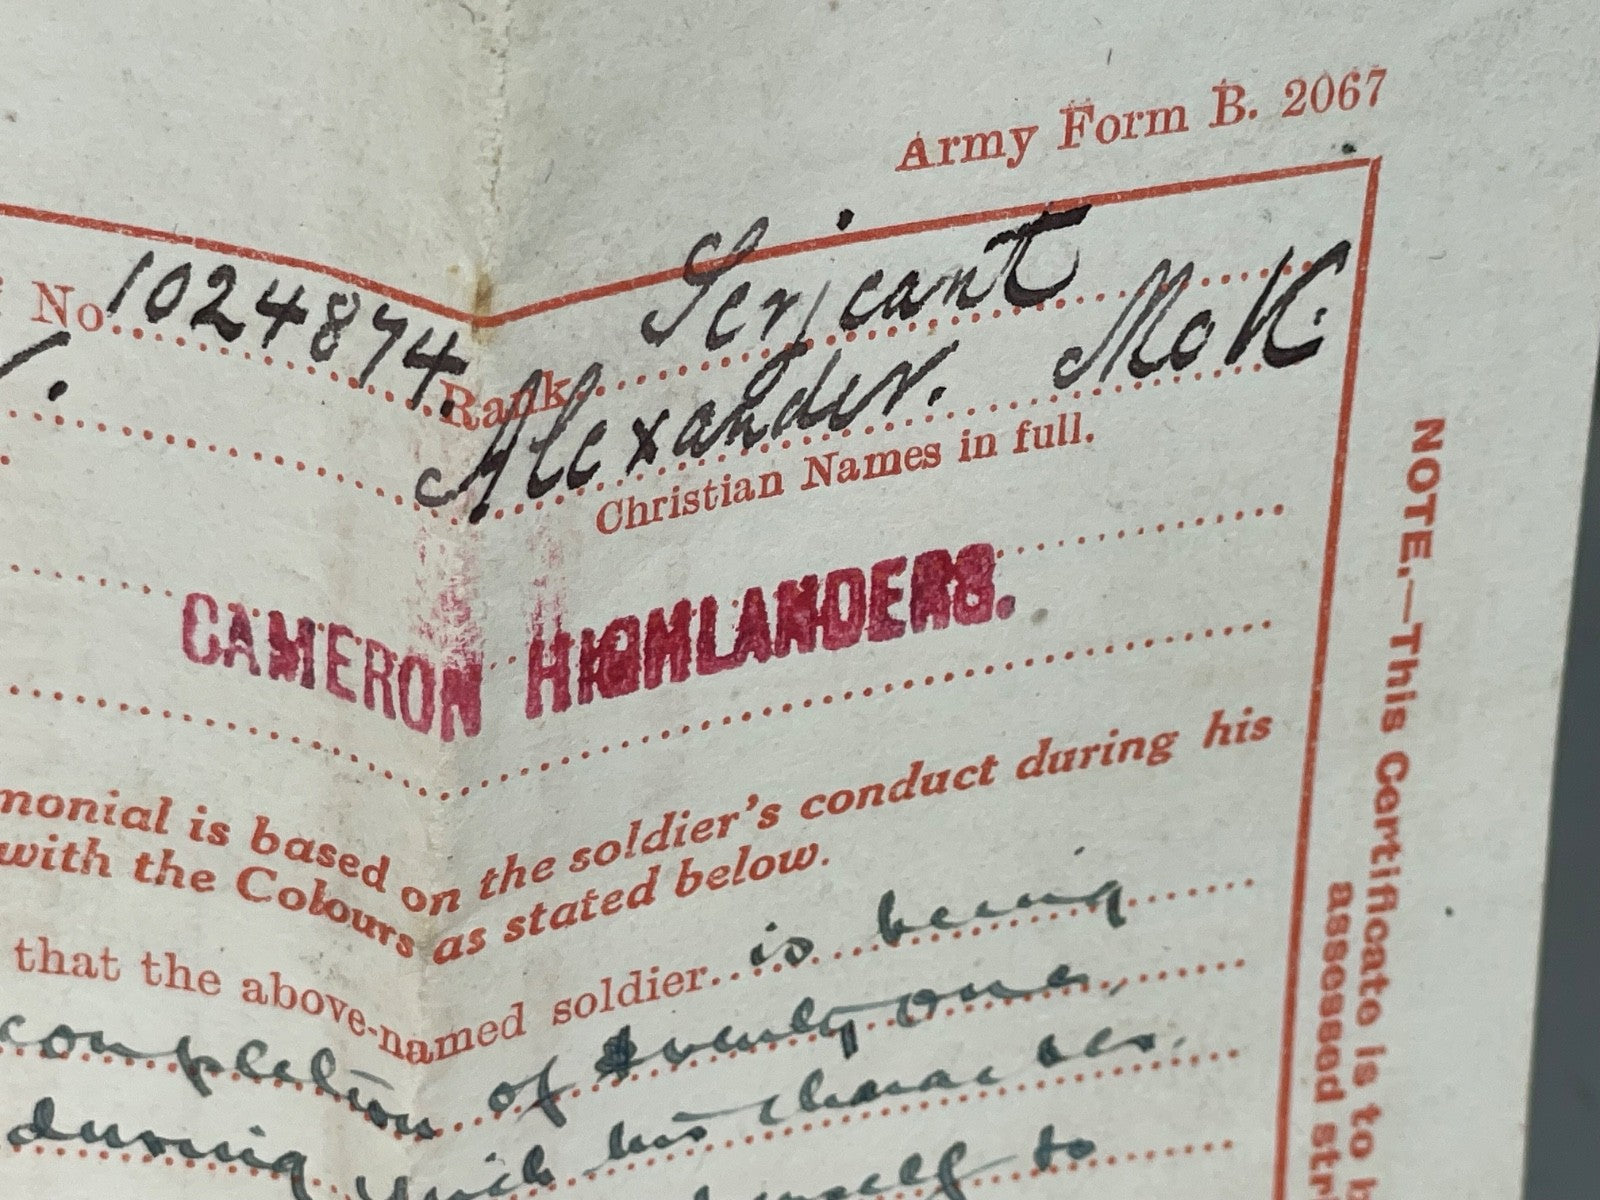 Army Form B. 2067
No. 1024874. Rank Serjeant
Alexander. McK.
Christian Names in full.
CAMERON HIGHLANDERS.
monial is based on the soldier's conduct during his
with the Colours as stated below.
that the above-named soldier is being
completion of twenty one,
during which his character
self to
NOTE.—This Certificate is to b
assessed stri